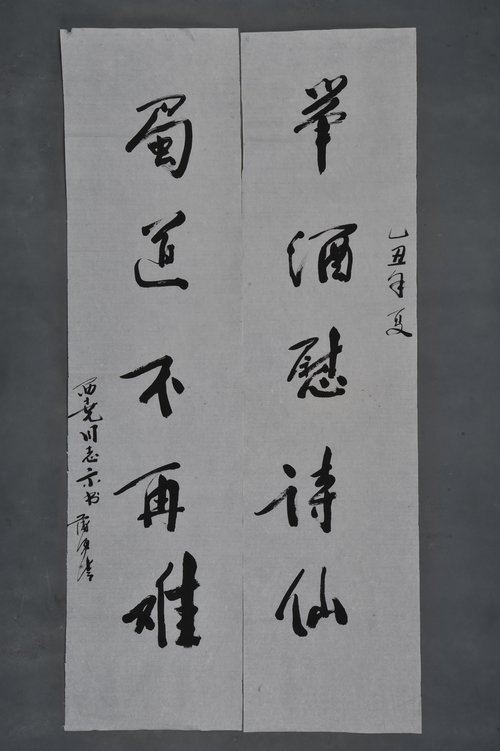 乙丑年夏
举酒慰诗仙
蜀道不再难
西尧同志